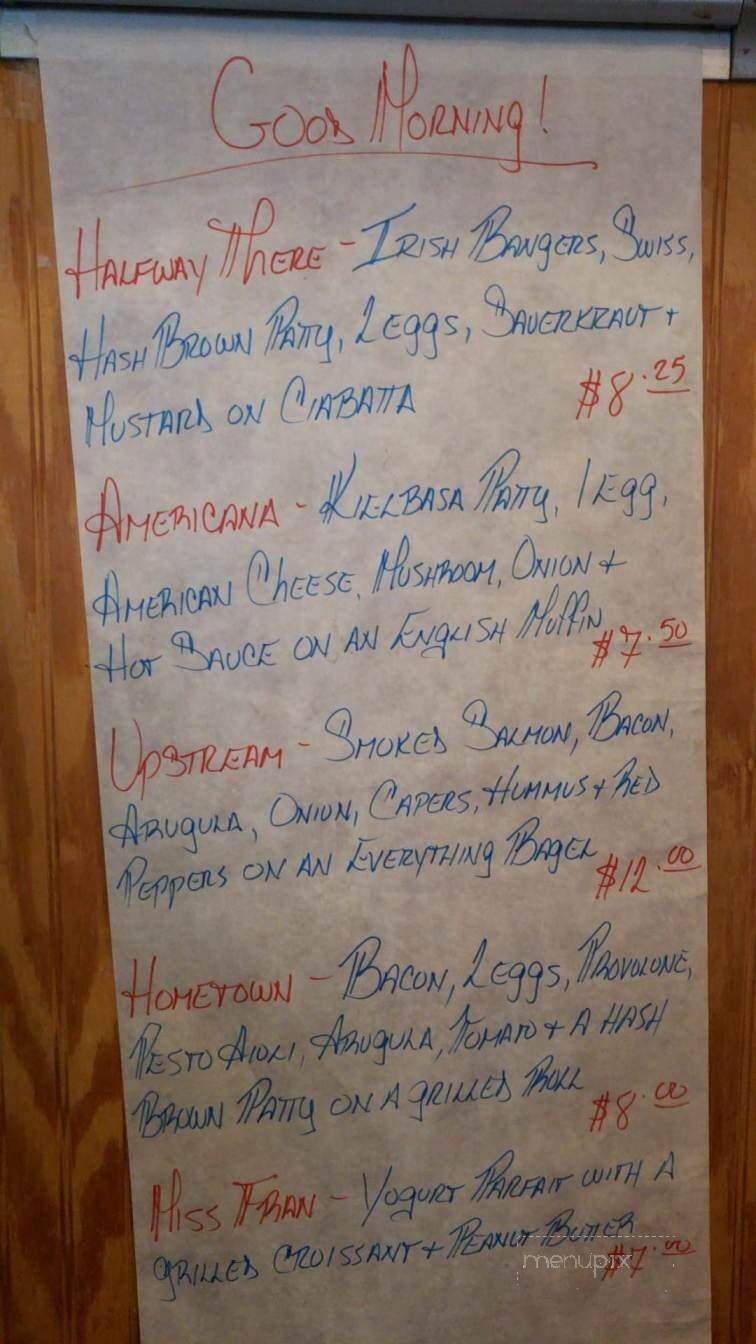 Good Morning!
Halfway There - Irish Bangers, Swiss,
Hash Brown Patty, 2 eggs, Sauerkraut +
Mustard on Ciabatta $8.25
Americana - Kielbasa Patty, 1 Egg,
American Cheese, Mushroom, Onion +
Hot Sauce on an English Muffin $7.50
Upstream - Smoked Salmon, Bacon,
Arugula, Onion, Capers, Hummus + Red
Peppers on an Everything Bagel $12.00
Hometown - Bacon, 2 eggs, Provolone,
Pesto Aioli, Arugula, Tomato + a Hash
Brown Patty on a grilled Roll $8.00
Miss Fran - Yogurt Parfait with a
grilled Croissant + Peanut Butter $7.00
menupix